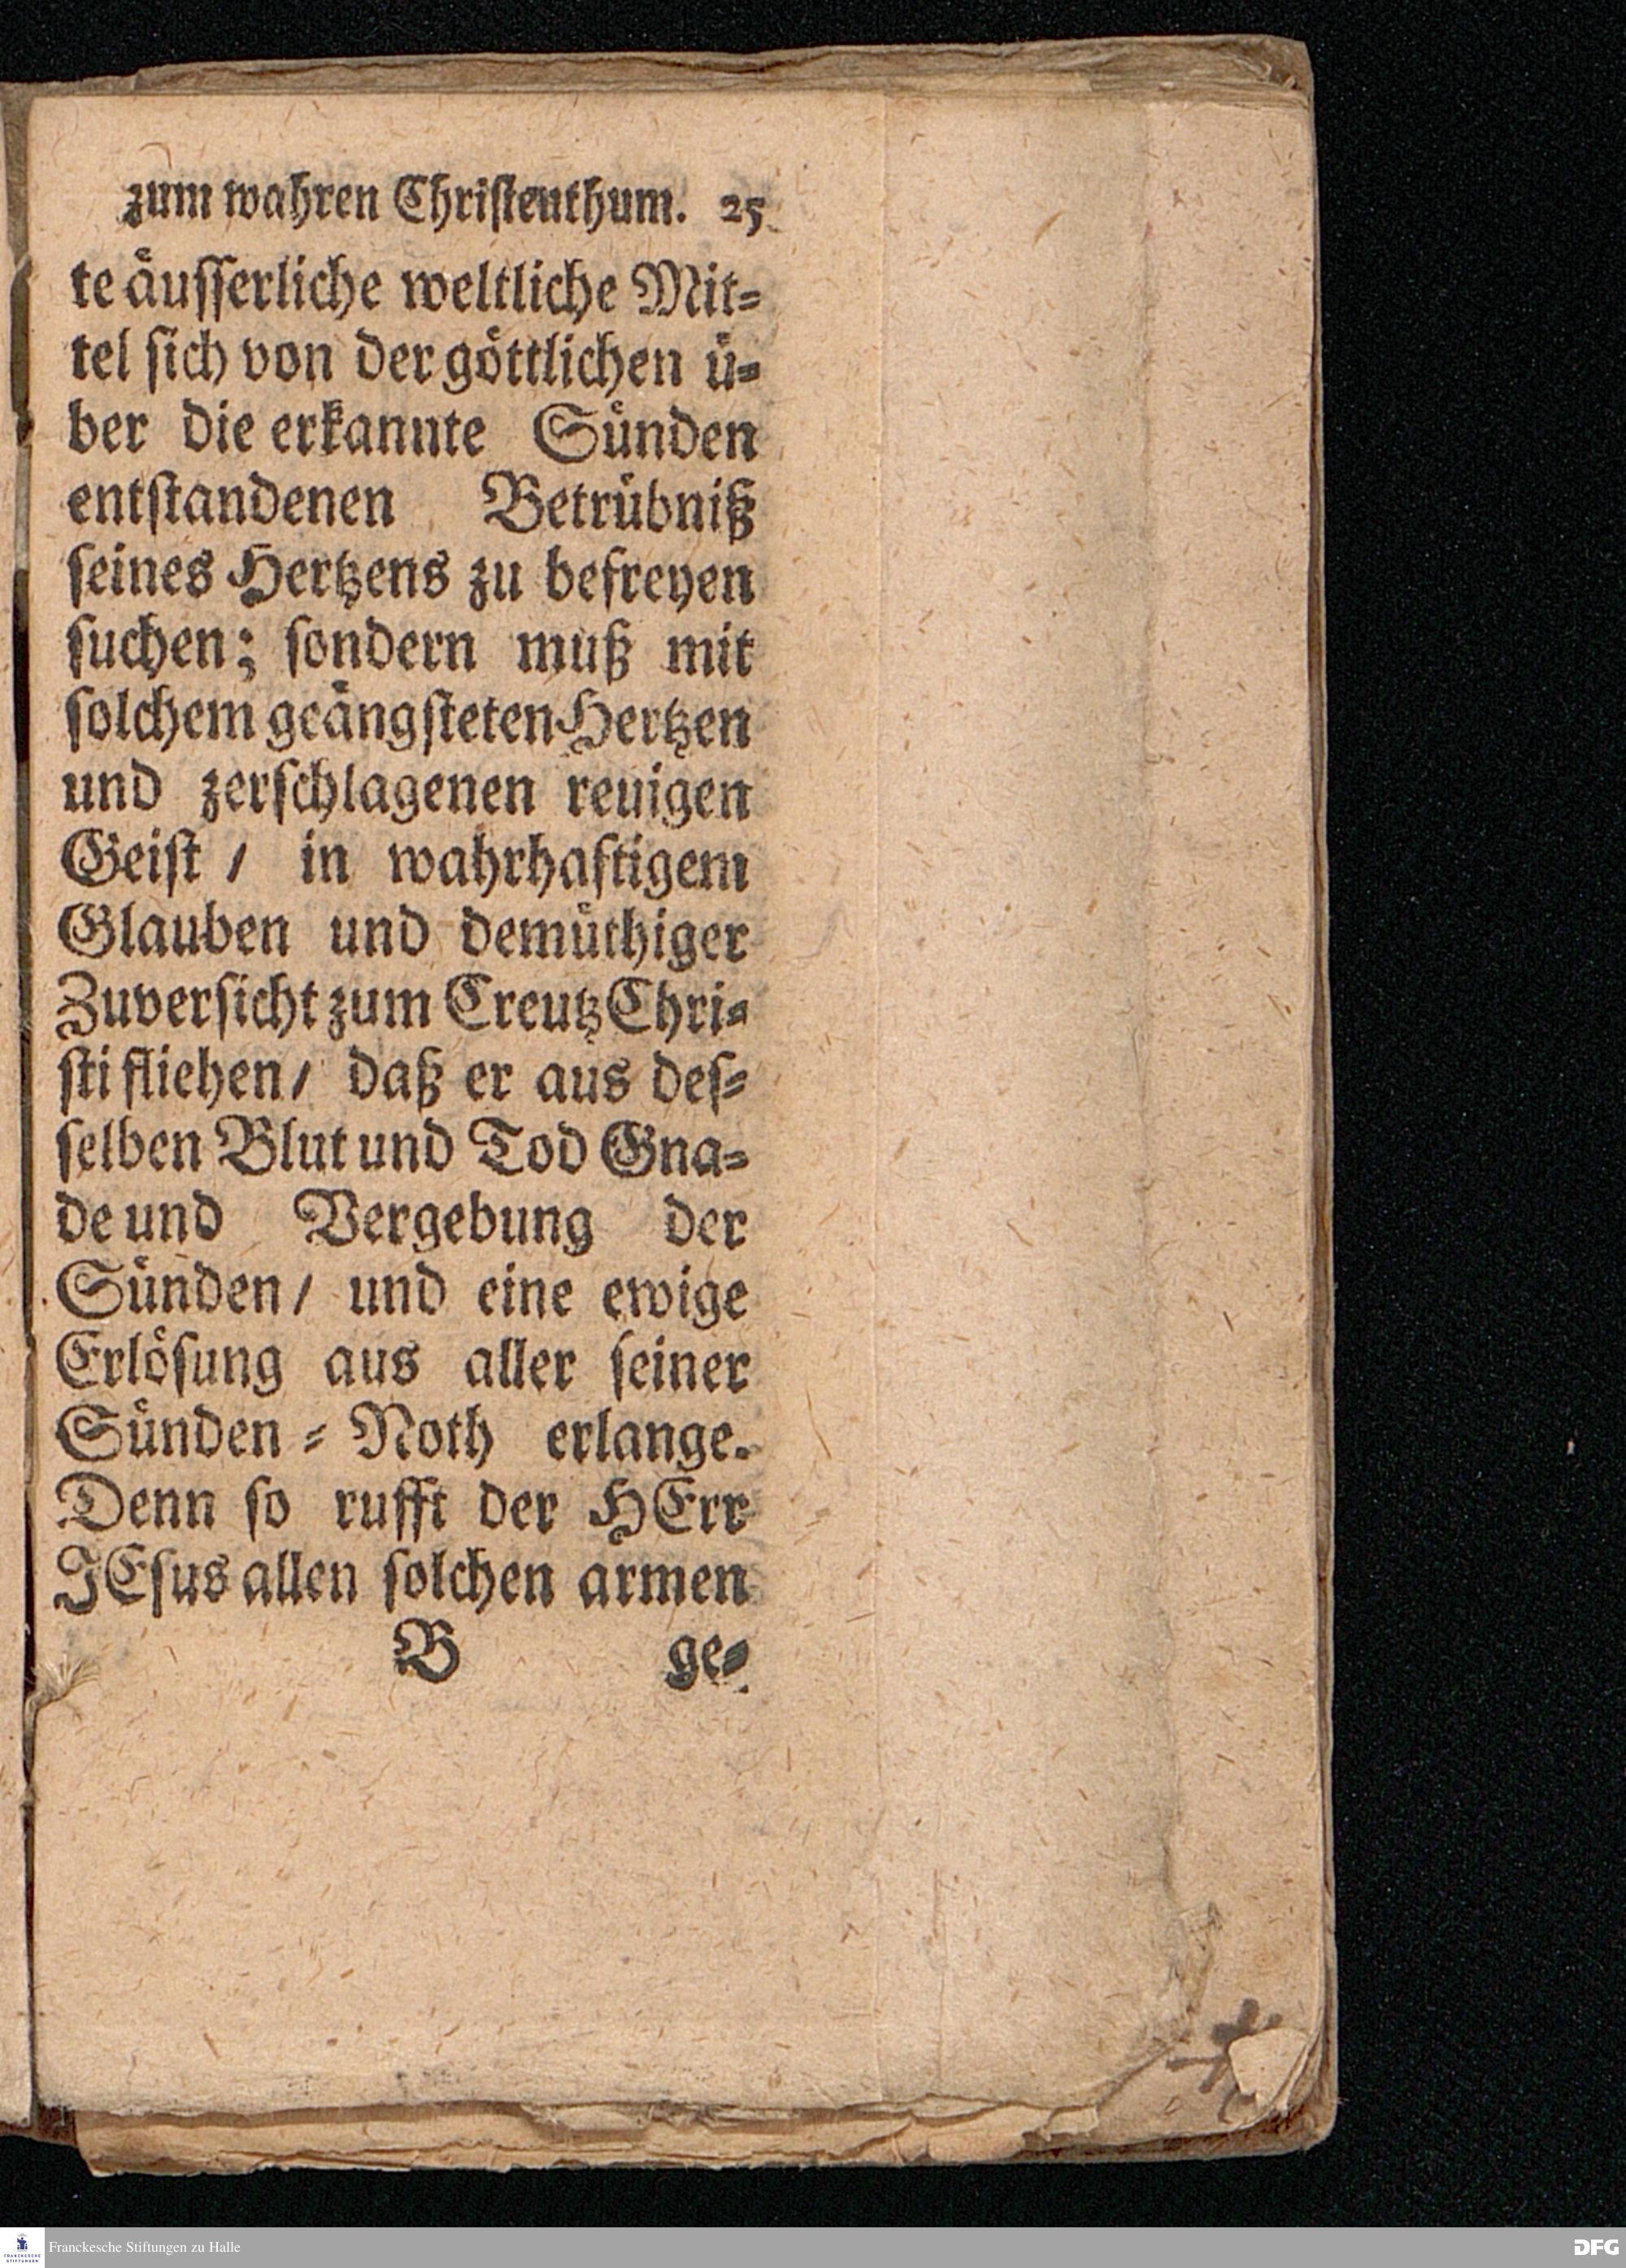 zum wahren Christenthum. 25
te äusserliche weltliche Mit-
tel sich von der göttlichen ü-
ber die erkannte Sünden
entstandenen Betrübniß
seines Hertzens zu befreyen
suchen; sondern muß mit
solchem geängsteten Hertzen
und zerschlagenen reuigen
Geist / in wahrhaftigem
Glauben und demüthiger
Zuversicht zum Creutz Chri-
sti fliehen / daß er aus des-
selben Blut und Tod Gna-
de und Vergebung der
Sünden / und eine ewige
Erlösung aus aller seiner
Sünden-Noth erlange.
Denn so rufft der HErr
JEsus allen solchen armen
B ge-
FRANCKESCHE STIFTUNGEN
Franckesche Stiftungen zu Halle
DFG